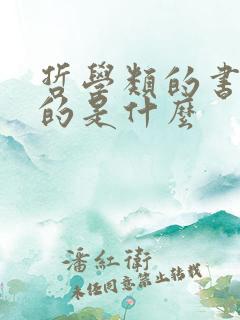 哲學類的書
的是什麼
潘紅衛
未經同意禁止轉載